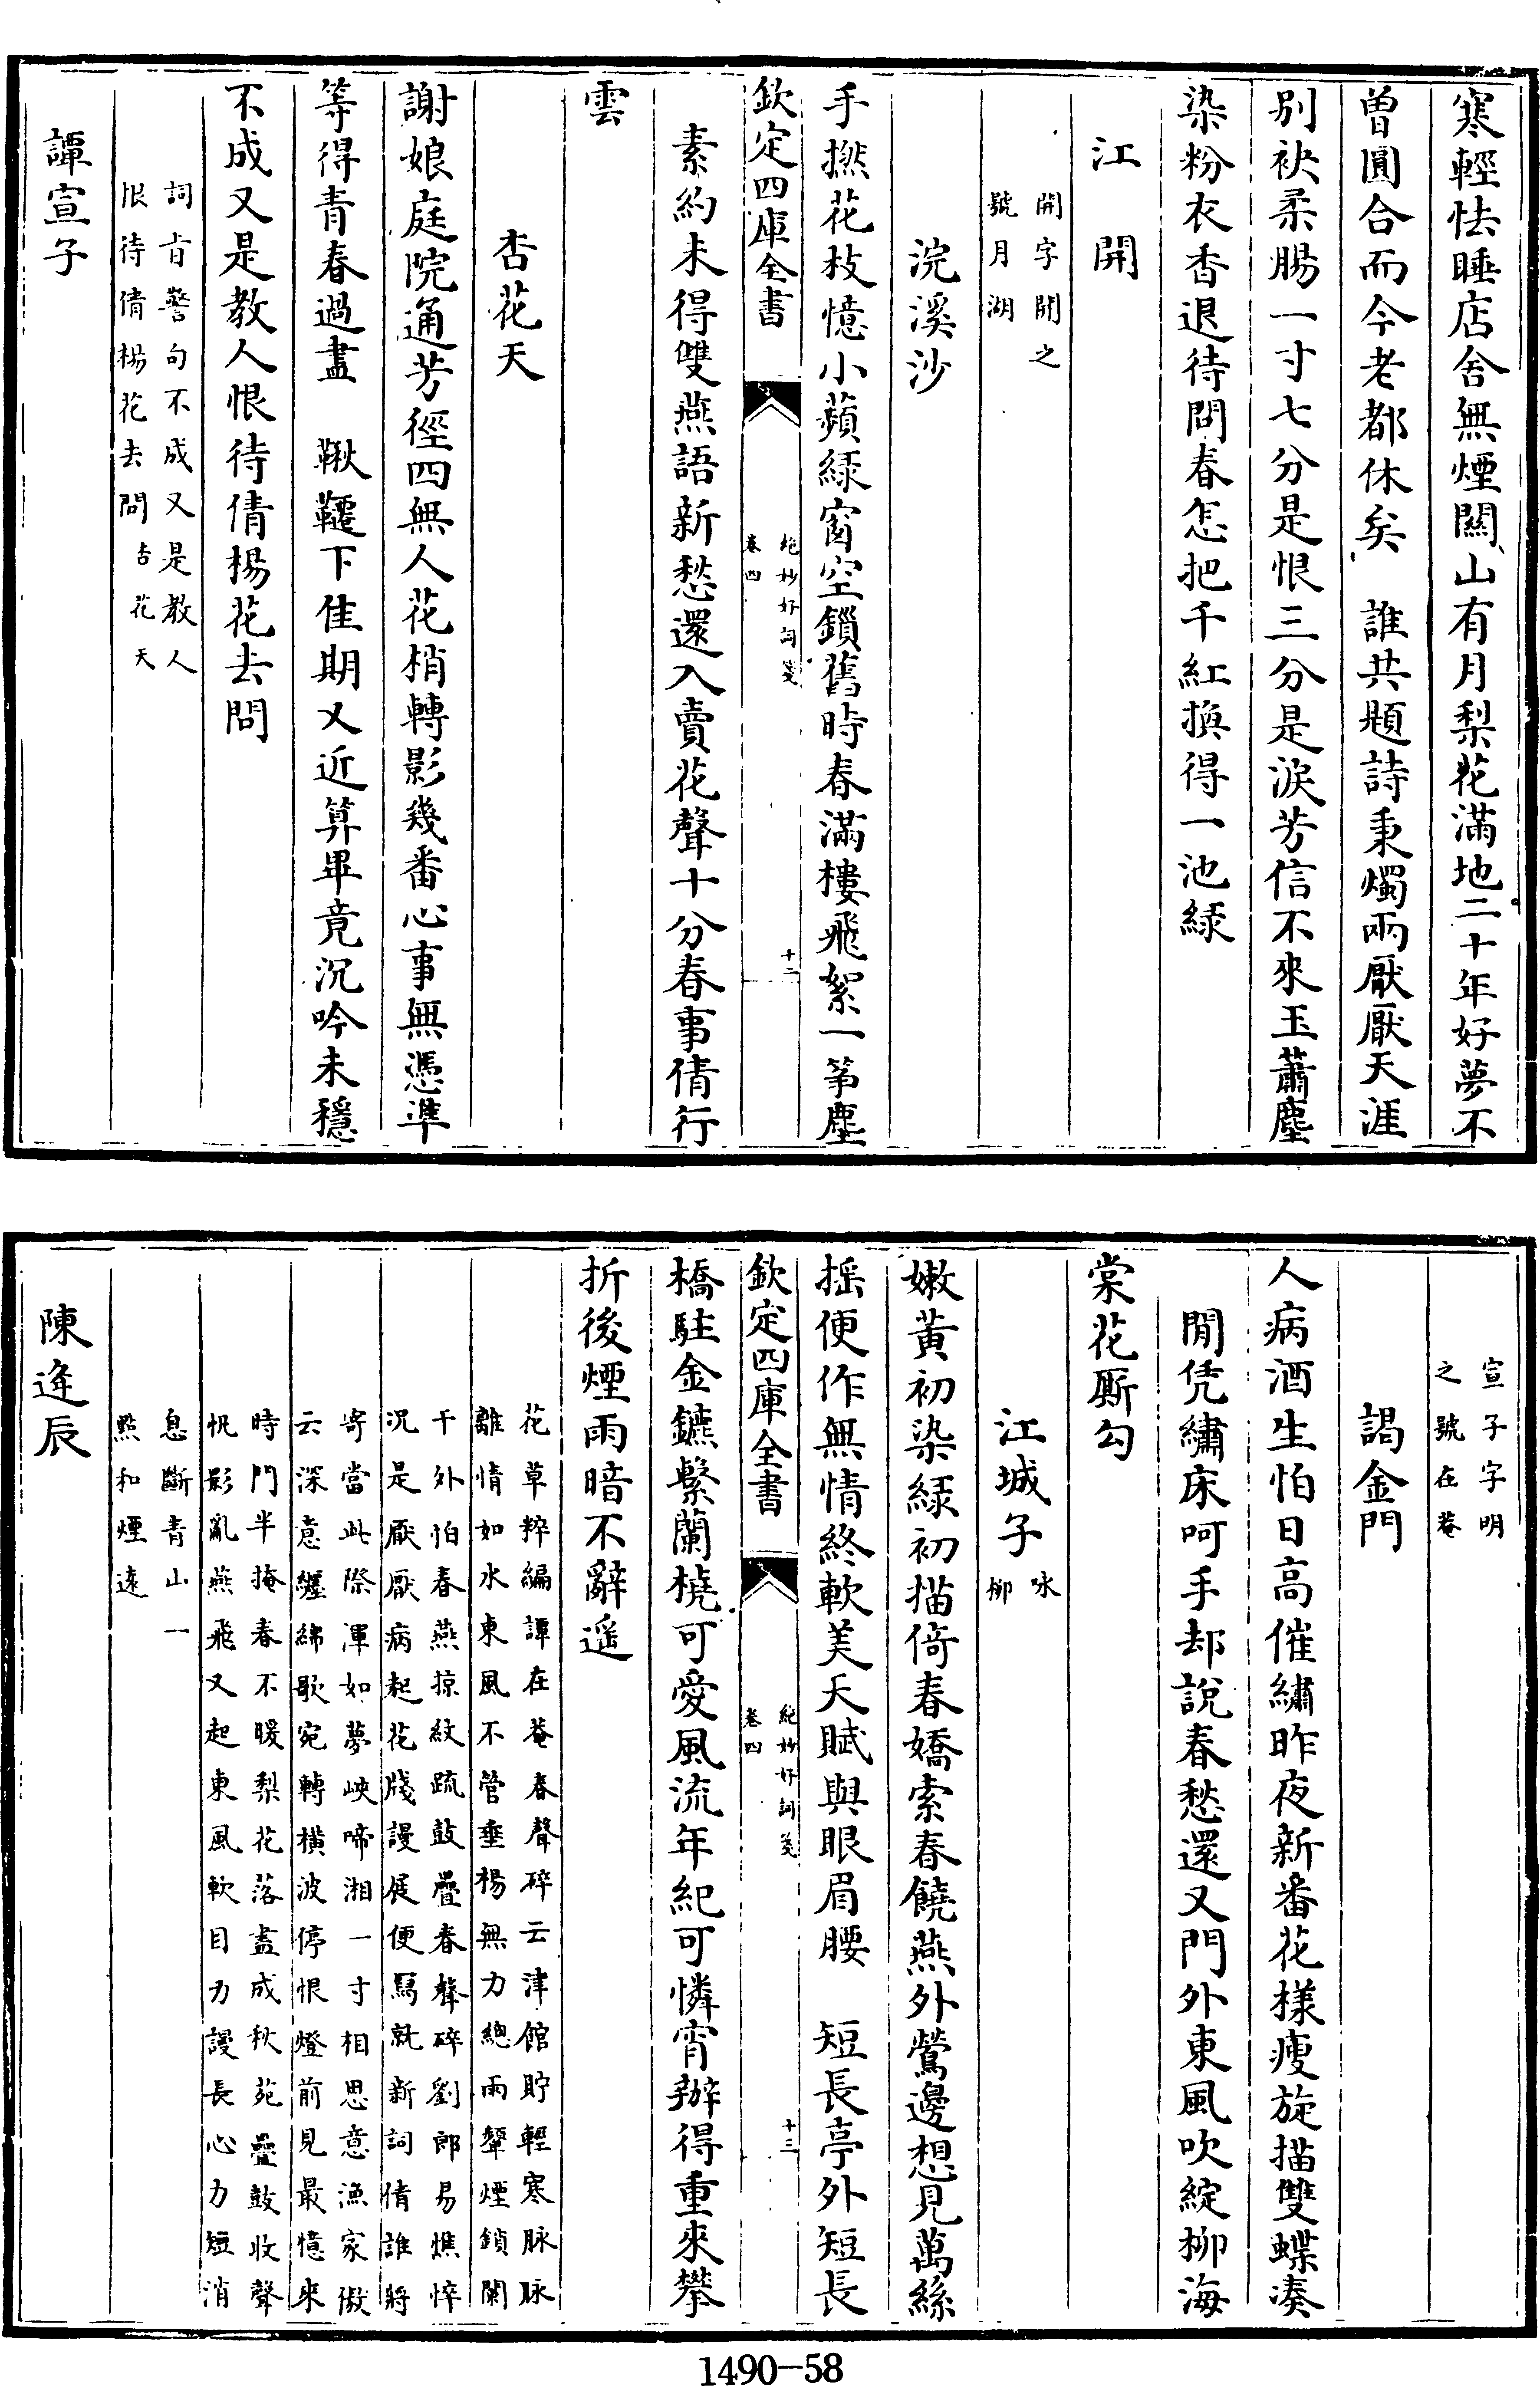 寒輕怯睡店舍無煙關山有月梨花滿地二十年好夢不
曾圓合而今老都休矣　誰共題詩秉燭兩厭厭天涯
别袂柔腸一寸七分是恨三分是淚芳信不來玉蕭塵
染粉衣香退待問春怎把千紅換得一池緑
江開
開字開之
號月湖
浣溪沙
手撚花枝憶小蘋緑窗空鎖舊時春滿樓飛絮一筝塵
欽定四庫全書
絶妙好詞箋
卷四
十二
素約未得雙燕語新愁還入賣花聲十分春事倩行
雲
杏花天
謝娘庭院通芳徑四無人花梢轉影幾番心事無憑準
等得青春過盡　鞦韆下佳期又近算畢竟沉吟未穩
不成又是教人恨待倩楊花去問
詞㫖警句不成又是教人
恨待倩楊花去問杏花天
譚宣子
宣子字明
之號在菴
謁金門
人病酒生怕日高催繡昨夜新番花様瘦旋描雙蝶凑
閒凭繡床呵手却說春愁還又門外東風吹綻柳海
棠花厮勾
江城子
咏
柳
嫩黃初染緑初描倚春嬌索春饒燕外鶯邊想見萬絲
揺便作無情終軟美天賦與眼眉腰　短長亭外短長
欽定四庫全書
絶妙好詞箋
卷四
十三
橋駐金鑣繫蘭橈可愛風流年紀可憐宵辦得重來攀
折後煙雨暗不辭遥
花草粹編譚在菴春聲碎云津館貯輕寒脉脉
離情如水東風不管垂楊無力總雨顰煙鎖闌
干外怕春燕掠紋疏鼓疊春聲碎劉郎易憔悴
沉是厭厭病起花牋謾展便寫就新詞倩誰將
寄當此際渾如夢峽啼湘一寸相思意漁家傲
云深意纏綿歌宛轉横波停恨燈前見最憶來
時門半掩春不暖梨花落盡成秋苑疊鼓收聲
帆影亂燕飛又起東風軟目力謾長心力短消
息斷青山一
點和煙逺
陳逄辰
1490—58